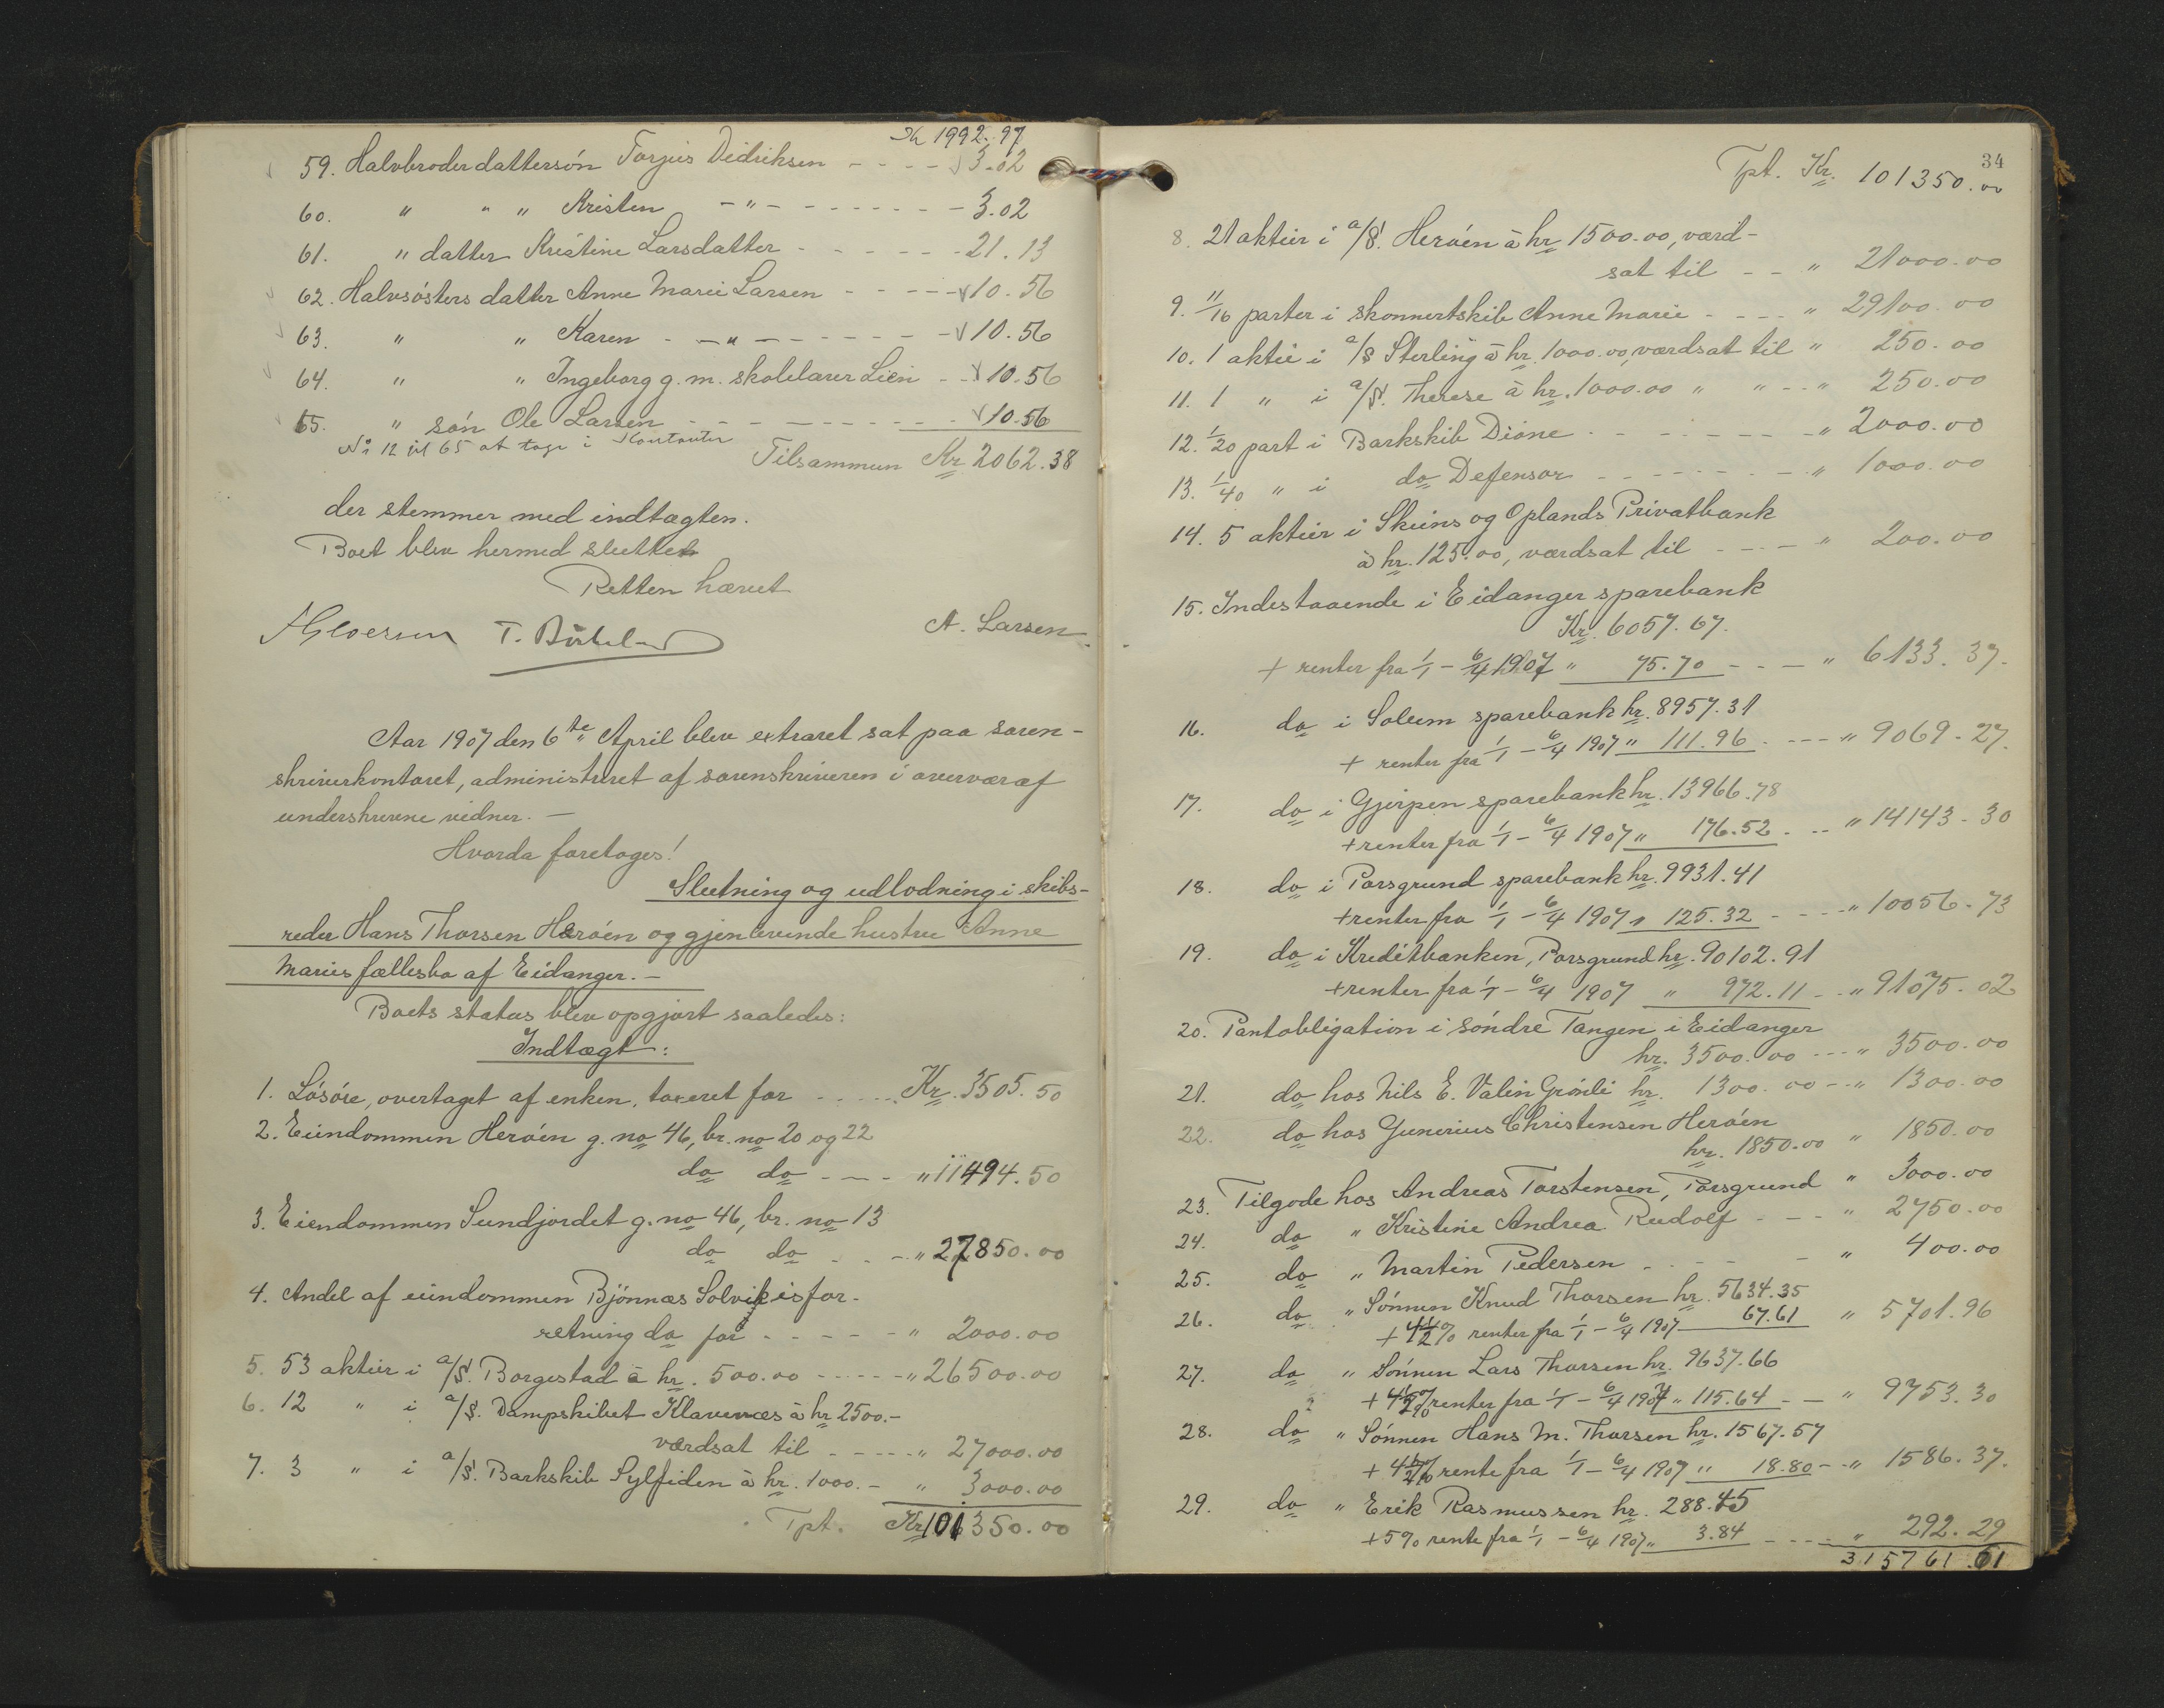 Tr 1992.97
59. Halvbroderdattersön Torjus Didriksen - - - - 3.02
60. " " " Kristen - " - - - - - - - 3.02
61. " datter Kristine Larsdatter - - - - - - 21.13
62. Halvsösters datter Anne Marie Larsen - - - - 10.56
63. " " Karen - - " - - - - - - - 10.56
64. " " Ingeborg g. m. skolelærer Lien - - 10.56
65. " sön Ole Larsen - - - - - - - - - 10.56
No 12 til 65 at tage i Kontanter
Tilsammen Kr. 2062.38
der stemmer med indtægten.
Boet blev hermed sluttet
Retten hævet
A. Larsen
Aar 1907 den 6te April blev extraret sat paa soren-
skriverkontoret, administreret af sorenskriveren i overvær af
underskrevne vidner. -
Hvorda foretoges!
Slutning og udlodning i skibs-
reder Hans Thorsen Heröen og gjenlevende hustru Anne
Maries fællesbo af Eidanger. -
Boets status blev opgjort saaledes:
Indtægt:
1. Lösöre, overtaget af enken, taxeret for - - - - - Kr. 3505.50
2. Eiendommen Heröen g. no 46, br. no 20 og 22
do do - - - " 11494.50
3. Eiendommen Sundjordet g. no 46, br. no 13
do do - - - " 27850.00
4. Andel af eiendommen Björnnæs Solvik isfor-
retning do for - - - - - " 2000.00
5. 53 aktier i a/S. Borgestad à kr. 500.00 - - - - - " 26500.00
6. 12 " i a/S. Dampskibet Klavenæs à kr 2500.-
værdsat til - - - - - " 27000.00
7. 3 " i a/S. Barkskib Sylfiden à kr. 1000.- " 3000.00
Tpt. Kr 101350.00
34
Tpt. Kr. 101350.00
8. 21 aktier i a/S. Heröen à kr 1500.00, værd-
sat til - - " 21000.00
9. 11/16 parter i skonnertskib Anne Marie - - - - " 29100.00
10. 1 aktie i a/S Sterling à kr. 1000.00, værdsat til " 250.00
11. 1 " i a/S. Therese à kr. 1000.00 " " - - " 250.00
12. 1/20 part i Barkskib Dione - - - - - - - - " 2000.00
13. 1/40 " i do Defensor - - - - - - - - " 1000.00
14. 5 aktier i Skiens og Oplands Privatbank
à kr. 125.00, værdsat til - - - - " 200.00
15. Indestaaende i Eidanger sparebank
Kr. 6057.67.
+ renter fra 1/1 - 6/4 1907 " 75.70 - - - " 6133.37.
16. do i Solum sparebank kr. 8957.31
+ renter fra 1/1 - 6/4 1907 " 111.96 - - - - " 9069.27.
17. do i Gjerpen sparebank kr. 13966.78
+ renter fra 1/1 - 6/4 1907 " 176.52 - - - " 14143.30
18. do i Porsgrund sparebank kr. 9931.41
+ renter fra 1/1 - 6/4 1907 " 125.32 - - - - " 10056.73
19. do i Kreditbanken, Porsgrund kr. 90102.91
+ renter fra 1/1 - 6/4 1907 " 972.11 - - " 91075.02
20. Pantobligation i söndre Tangen i Eidanger
kr. 3500.00 - - - " 3500.00
21. do hos Nils E. Valin Grönli kr. 1300.00 - - " 1300.00
22. do hos Gunerius Christensen Heröen
kr. 1850.00 " 1850.00
23. Tilgode hos Andreas Torstensen, Porsgrund " 3000.00
24. do " Kristine Andrea Rudolf - - - " 2750.00
25. do " Martin Pedersen - - - - " 400.00
26. do " Sönnen Knud Thorsen kr. 5634.35
+ 4 1/2 % renter fra 1/1 - 6/4 1907 67.61 " 5701.96
27. do " Sönnen Lars Thorsen kr. 9637.66
+ 4 1/2 % renter fra 1/1 - 6/4 1907 " 115.64 - - " 9753.30
28. do " Sönnen Hans M. Thorsen kr. 1567.57
+ 4 1/2 % rente fra 1/1 - 6/4 1907 " 18.80 - - " 1586.37.
29. do " Erik Rasmussen kr. 288.45
+ 5% rente fra 1/1 - 6/4 1907 " 3.84 - - - - " 292.29
315761.61